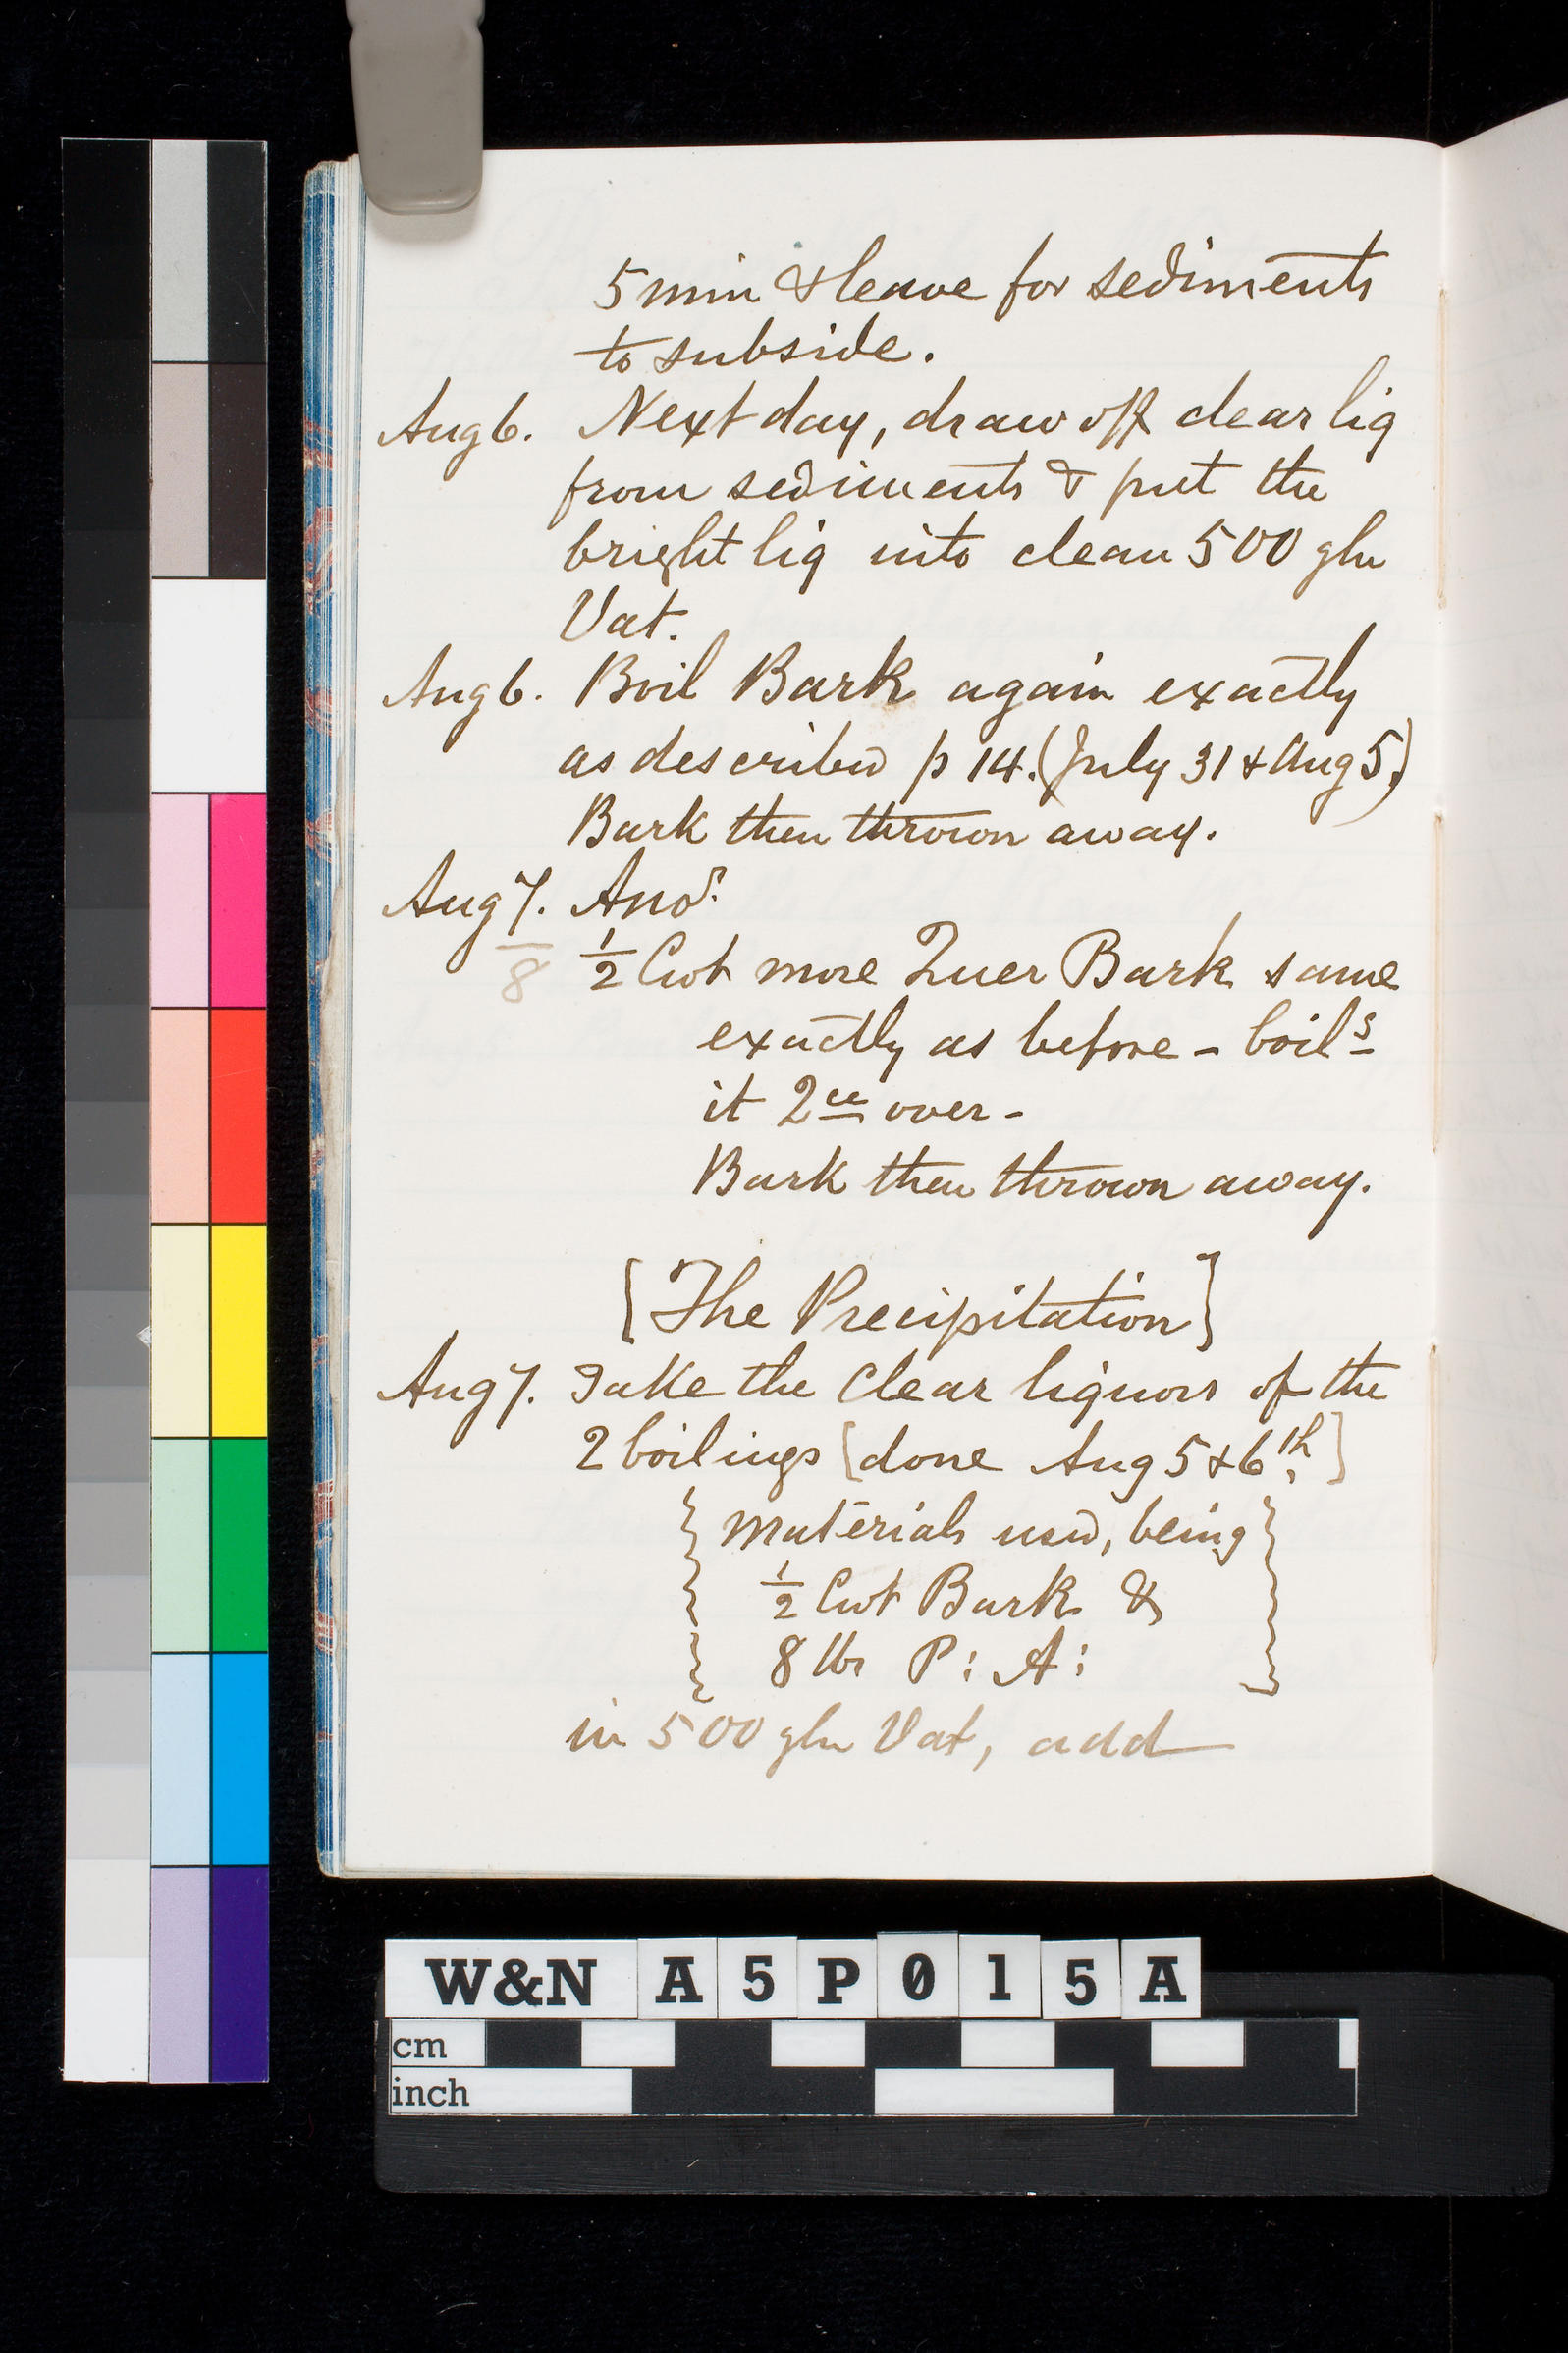 5 min & leave for sediments
to subside.
Aug 6. Next day, draw off clear liq
from sediments & put the
bright liq into clean 500 gln
Vat.
Aug 6. Boil Bark again exactly
as described p 14. (July 31 & Aug 5.)
Bark then thrown away.
Aug 7. Anor.
8 ½ Cwt more Quer Bark same
exactly as before - boils
it 2ce over -
Bark then thrown away.
[The Precipitation]
Aug 7. Take the clear liquors of the
2 boilings [done Aug 5 & 6th.]
{ Materials used, being }
½ Cwt Bark &
8 lbs P: A:
in 500 gln Vat, add
W&N A5P015A
cm
inch